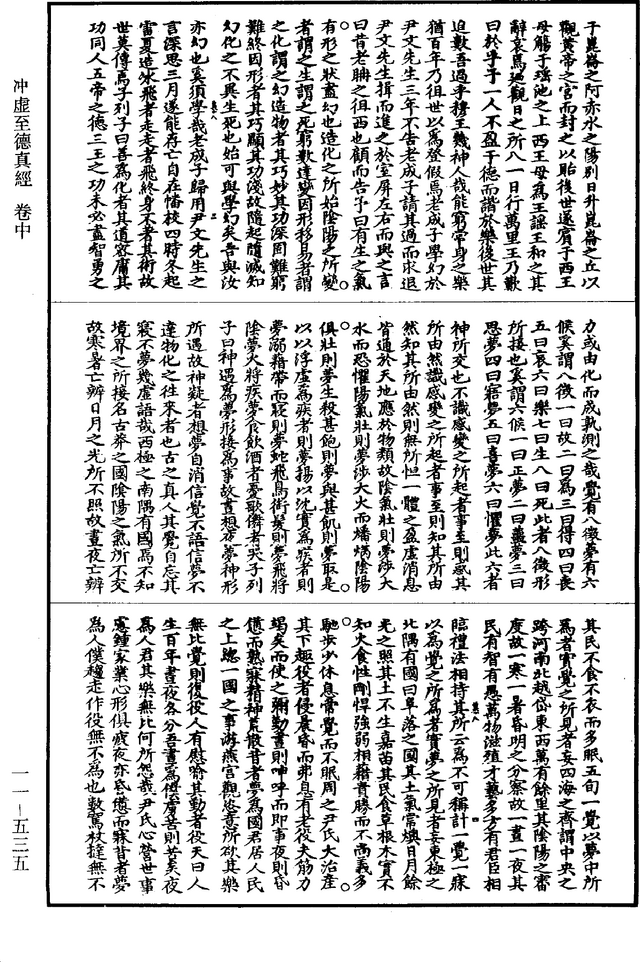 于崑崙之阿赤水之陽别日升崑崙之丘以
觀黃帝之宮而封之以貽後世遂賓于西王
母觴于瑤池之上西王母為王謠王和之其
辭哀焉迺觀日之所入一日行萬里王乃歎
曰於乎予一人不盈于德而諧於樂後世其
追數吾過乎穆王幾神人哉能窮當身之樂
猶百年乃徂世以為登假焉老成子學幻於
尹文先生三年不告老成子請其過而求退
尹文先生揖而進之於室屏左右而與之言
曰昔老聃之徂西也顧而告予曰有生之氣
有形之狀盡幻也造化之所始陰陽之所變
者謂之生謂之死窮數達變因形移易者謂
之化謂之幻造物者其巧妙其功深固難窮
難終因形者其巧顯其功淺故隨起隨滅知
幻化之不異生死也始可與學幻矣吾與汝
卷八 二
亦幻也奚須學哉老成子歸用尹文先生之
言深思三月遂能存亡自在憣校四時冬起
雷夏造冰飛者走走者飛終身不著其術故
世莫傳焉子列子曰善為化者其道密庸其
功同人五帝之德三王之功未必盡智勇之
力或由化而成孰測之哉覺有八徵夢有六
候奚謂八徵一曰故二曰為三曰得四曰喪
五曰哀六曰樂七曰生八曰死此者八徵形
所接也奚謂六候一曰正夢二曰蘁夢三曰
思夢四曰寤夢五曰喜夢六曰懼夢此六者
神所交也不識感變之所起者事至則惑其
所由然識感變之所起者事至則知其所由
然知其所由然則無所怛一體之盈虛消息
皆通於天地應於物類故陰氣壯則夢涉大
水而恐懼陽氣壯則夢涉大火而燔焫陰陽
俱壯則夢生殺甚飽則夢與甚飢則夢取是
以以浮虛為疾者則夢揚以沈實為疾者則
夢溺藉帶而寢則夢蛇飛鳥銜髮則夢飛將
陰夢火將疾夢食飲酒者憂歌儛者哭子列
子曰神遇為夢形接為事故晝想夜夢神形
所遇故神凝者想夢自消信覺不語信夢不
達物化之往來者也古之真人其覺自忘其
寢不夢幾虛語哉西極之南隅有國焉不知
境界之所接名古莽之國陰陽之氣所不交
故寒暑亡辨日月之光所不照故晝夜亡辨
其民不食不衣而多眠五旬一覺以夢中所
為者實覺之所見者妄四海之齊謂中央之
跨河南北越岱東西萬有餘里其陰陽之審
度故一寒一暑昏明之分察故一晝一夜其
民有智有愚萬物滋殖才藝多方有君臣相
卷八 四
臨禮法相持其所云為不可稱計一覺一寐
以為覺之所為者實夢之所見者妄東極之
北隅有國曰阜落之國其土氣常燠日月餘
光之照其土不生嘉苗其民食草根木實不
知火食性剛悍強弱相藉貴勝而不尚義多
馳步少休息常覺而不眠周之尹氏大治產
其下趣役者侵晨昏而弗息有老役夫筋力
竭矣而使之彌勤晝則呻呼而即事夜則昏
憊而熟寐精神荒散昔昔夢為國君居人民
之上總一國之事遊燕宮觀恣意所欲其樂
無比覺則復役人有慰喻其懃者役夫曰人
生百年晝夜各分吾晝為僕虜苦則苦矣夜
為人君其樂無比何所怨哉尹氏心營世事
慮鍾家業心形俱疲夜亦昏憊而寐昔昔夢
為人僕趨走作役無不為也數罵杖撻無不
冲虛至德真經 卷中
一一—五三五